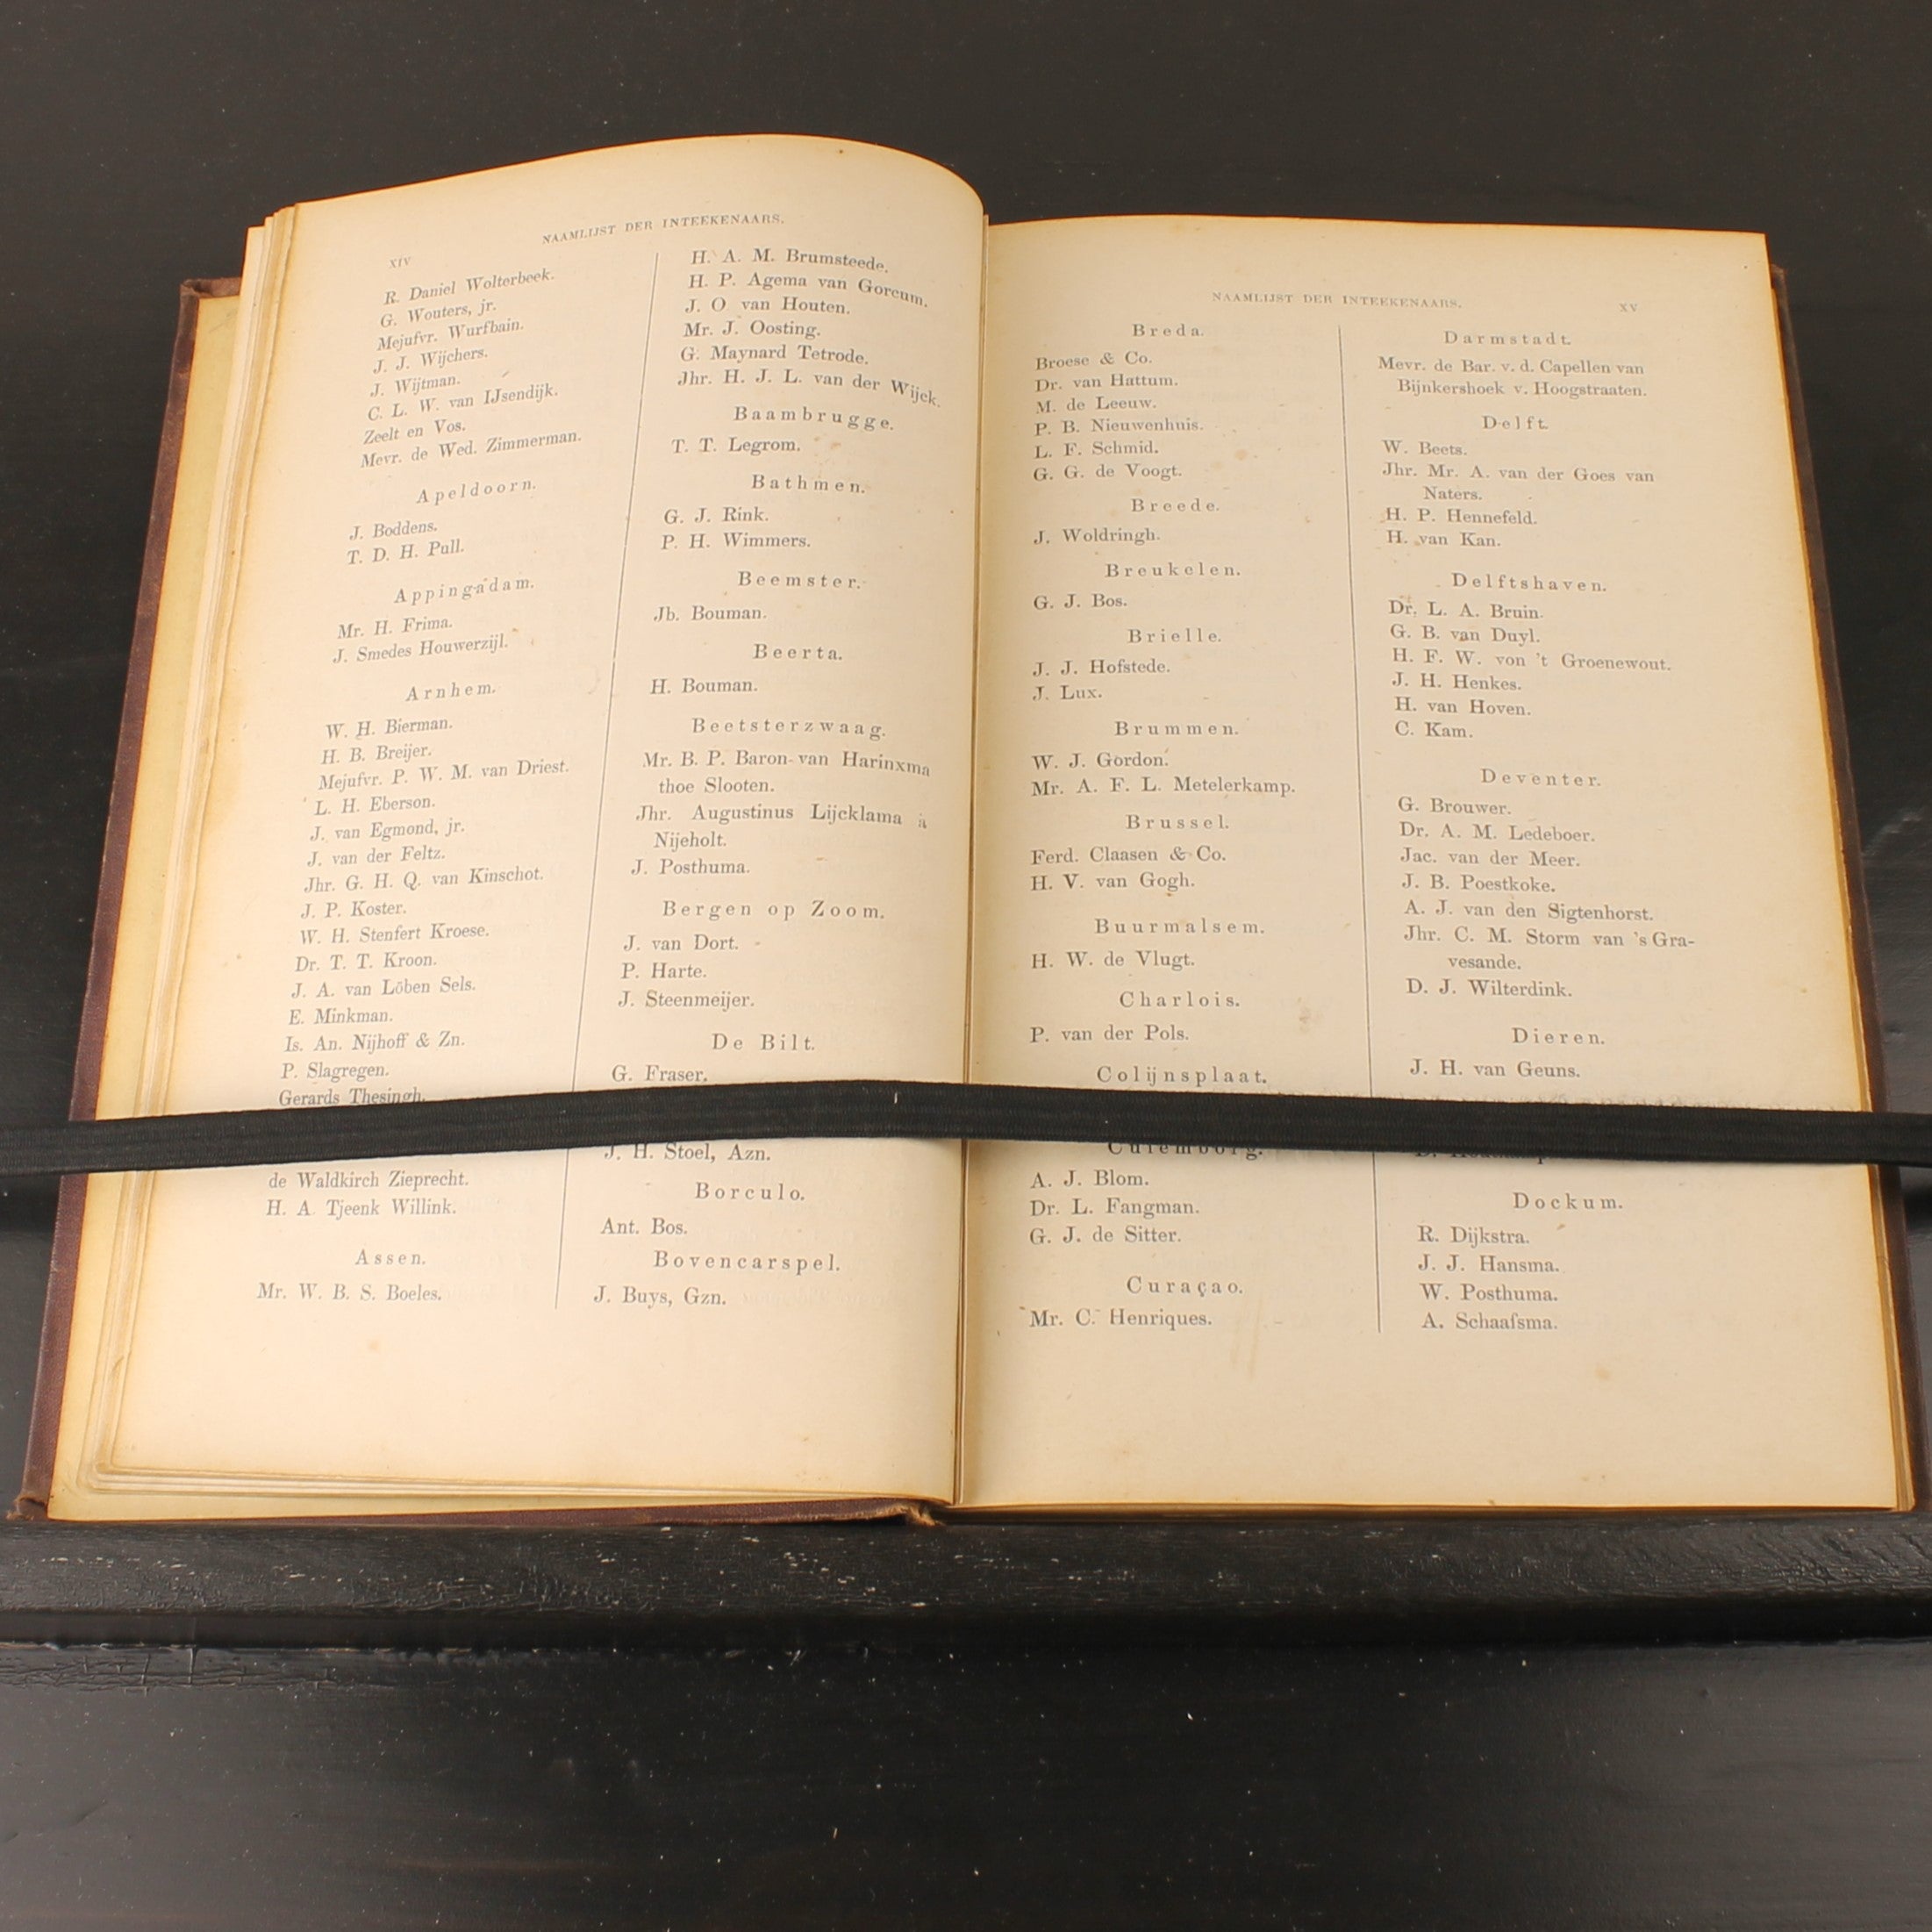 XIV
NAAMLIJST DER INTEEKENAARS.
R. Daniel Wolterbeek.
G. Wouters, jr.
Mejufvr. Wurfbain.
J. J. Wijchers.
J. Wijtman.
C. L. W. van IJsendijk.
Zeelt en Vos.
Mevr. de Wed. Zimmerman.
Apeldoorn.
J. Boddens.
T. D. H. Pull.
Appingadam.
Mr. H. Frima.
J. Smedes Houwerzijl.
Arnhem.
W. H. Bierman.
H. B. Breijer.
Mejufvr. P. W. M. van Driest.
L. H. Eberson.
J. van Egmond, jr.
J. van der Feltz.
Jhr. G. H. Q. van Kinschot.
J. P. Koster.
W. H. Stenfert Kroese.
Dr. T. T. Kroon.
J. A. van Löben Sels.
E. Minkman.
Is. An. Nijhoff & Zn.
P. Slagregen.
Gerards Thesingh.
de Waldkirch Zieprecht.
H. A. Tjeenk Willink.
Assen.
Mr. W. B. S. Boeles.
H. A. M. Brumsteede.
H. P. Agema van Gorcum.
J. O van Houten.
Mr. J. Oosting.
G. Maynard Tetrode.
Jhr. H. J. L. van der Wijck.
Baambrugge.
T. T. Legrom.
Bathmen.
G. J. Rink.
P. H. Wimmers.
Beemster.
Jb. Bouman.
Beerta.
H. Bouman.
Beetsterzwaag.
Mr. B. P. Baron van Harinxma
thoe Slooten.
Jhr. Augustinus Lijcklama à
Nijeholt.
J. Posthuma.
Bergen op Zoom.
J. van Dort.
P. Harte.
J. Steenmeijer.
De Bilt.
G. Fraser.
J. H. Stoel, Azn.
Borculo.
Ant. Bos.
Bovencarspel.
J. Buys, Gzn.
NAAMLIJST DER INTEEKENAARS.
XV
Breda.
Broese & Co.
Dr. van Hattum.
M. de Leeuw.
P. B. Nieuwenhuis.
L. F. Schmid.
G. G. de Voogt.
Breede.
J. Woldringh.
Breukelen.
G. J. Bos.
Brielle.
J. J. Hofstede.
J. Lux.
Brummen.
W. J. Gordon.
Mr. A. F. L. Metelerkamp.
Brussel.
Ferd. Claasen & Co.
H. V. van Gogh.
Buurmalsem.
H. W. de Vlugt.
Charlois.
P. van der Pols.
Colijnsplaat.
Culemborg.
A. J. Blom.
Dr. L. Fangman.
G. J. de Sitter.
Curaçao.
Mr. C. Henriques.
Darmstadt.
Mevr. de Bar. v. d. Capellen van
Bijnkershoek v. Hoogstraaten.
Delft.
W. Beets.
Jhr. Mr. A. van der Goes van
Naters.
H. P. Hennefeld.
H. van Kan.
Delftshaven.
Dr. L. A. Bruin.
G. B. van Duyl.
H. F. W. von 't Groenewout.
J. H. Henkes.
H. van Hoven.
C. Kam.
Deventer.
G. Brouwer.
Dr. A. M. Ledeboer.
Jac. van der Meer.
J. B. Poestkoke.
A. J. van den Sigtenhorst.
Jhr. C. M. Storm van 's Gra-
vesande.
D. J. Wilterdink.
Dieren.
J. H. van Geuns.
Dockum.
R. Dijkstra.
J. J. Hansma.
W. Posthuma.
A. Schaafsma.